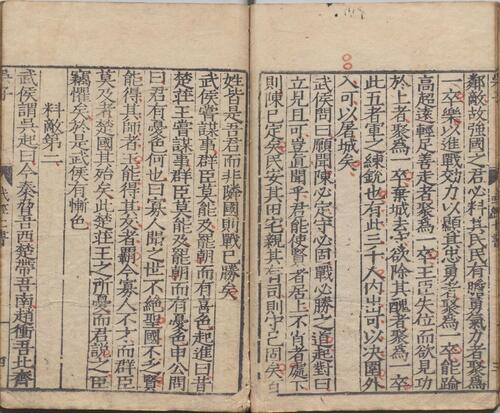 鄰敵故強國之君必料其民民有膽勇氣力者聚爲
一卒樂以進戰效力以顯其忠勇者聚爲一卒能踰
高超遠輕足善走者聚爲一卒王臣失位而欲見功
於上者聚爲一卒棄城去守欲除其醜者聚爲一卒
此五者軍之練銳也有此三千人内出可以決圍外
入可以屠城矣
武侯問曰願聞陳必定守必固戰必勝之道起對曰
立見且可豈直聞乎君能使賢者居上不肖者處下
則陳已定矣民安其田宅親其有司則守已固矣百
姓皆是吾君而非隣國則戰已勝矣
武侯嘗謀事群臣莫能及罷朝而有喜色起進曰昔
楚莊王嘗謀事群臣莫能及罷朝而有憂色申公問
曰君有憂色何也曰寡人聞之世不絶聖國不乏賢
能得其師者王能得其友者霸今寡人不才而群臣
莫及者楚國其殆矣此楚莊王之所憂而君説之臣
竊懼矣於是武侯有慚色
料敵第二
武侯謂吳起曰今秦脅吾西楚帶吾南趙衝吾北齊